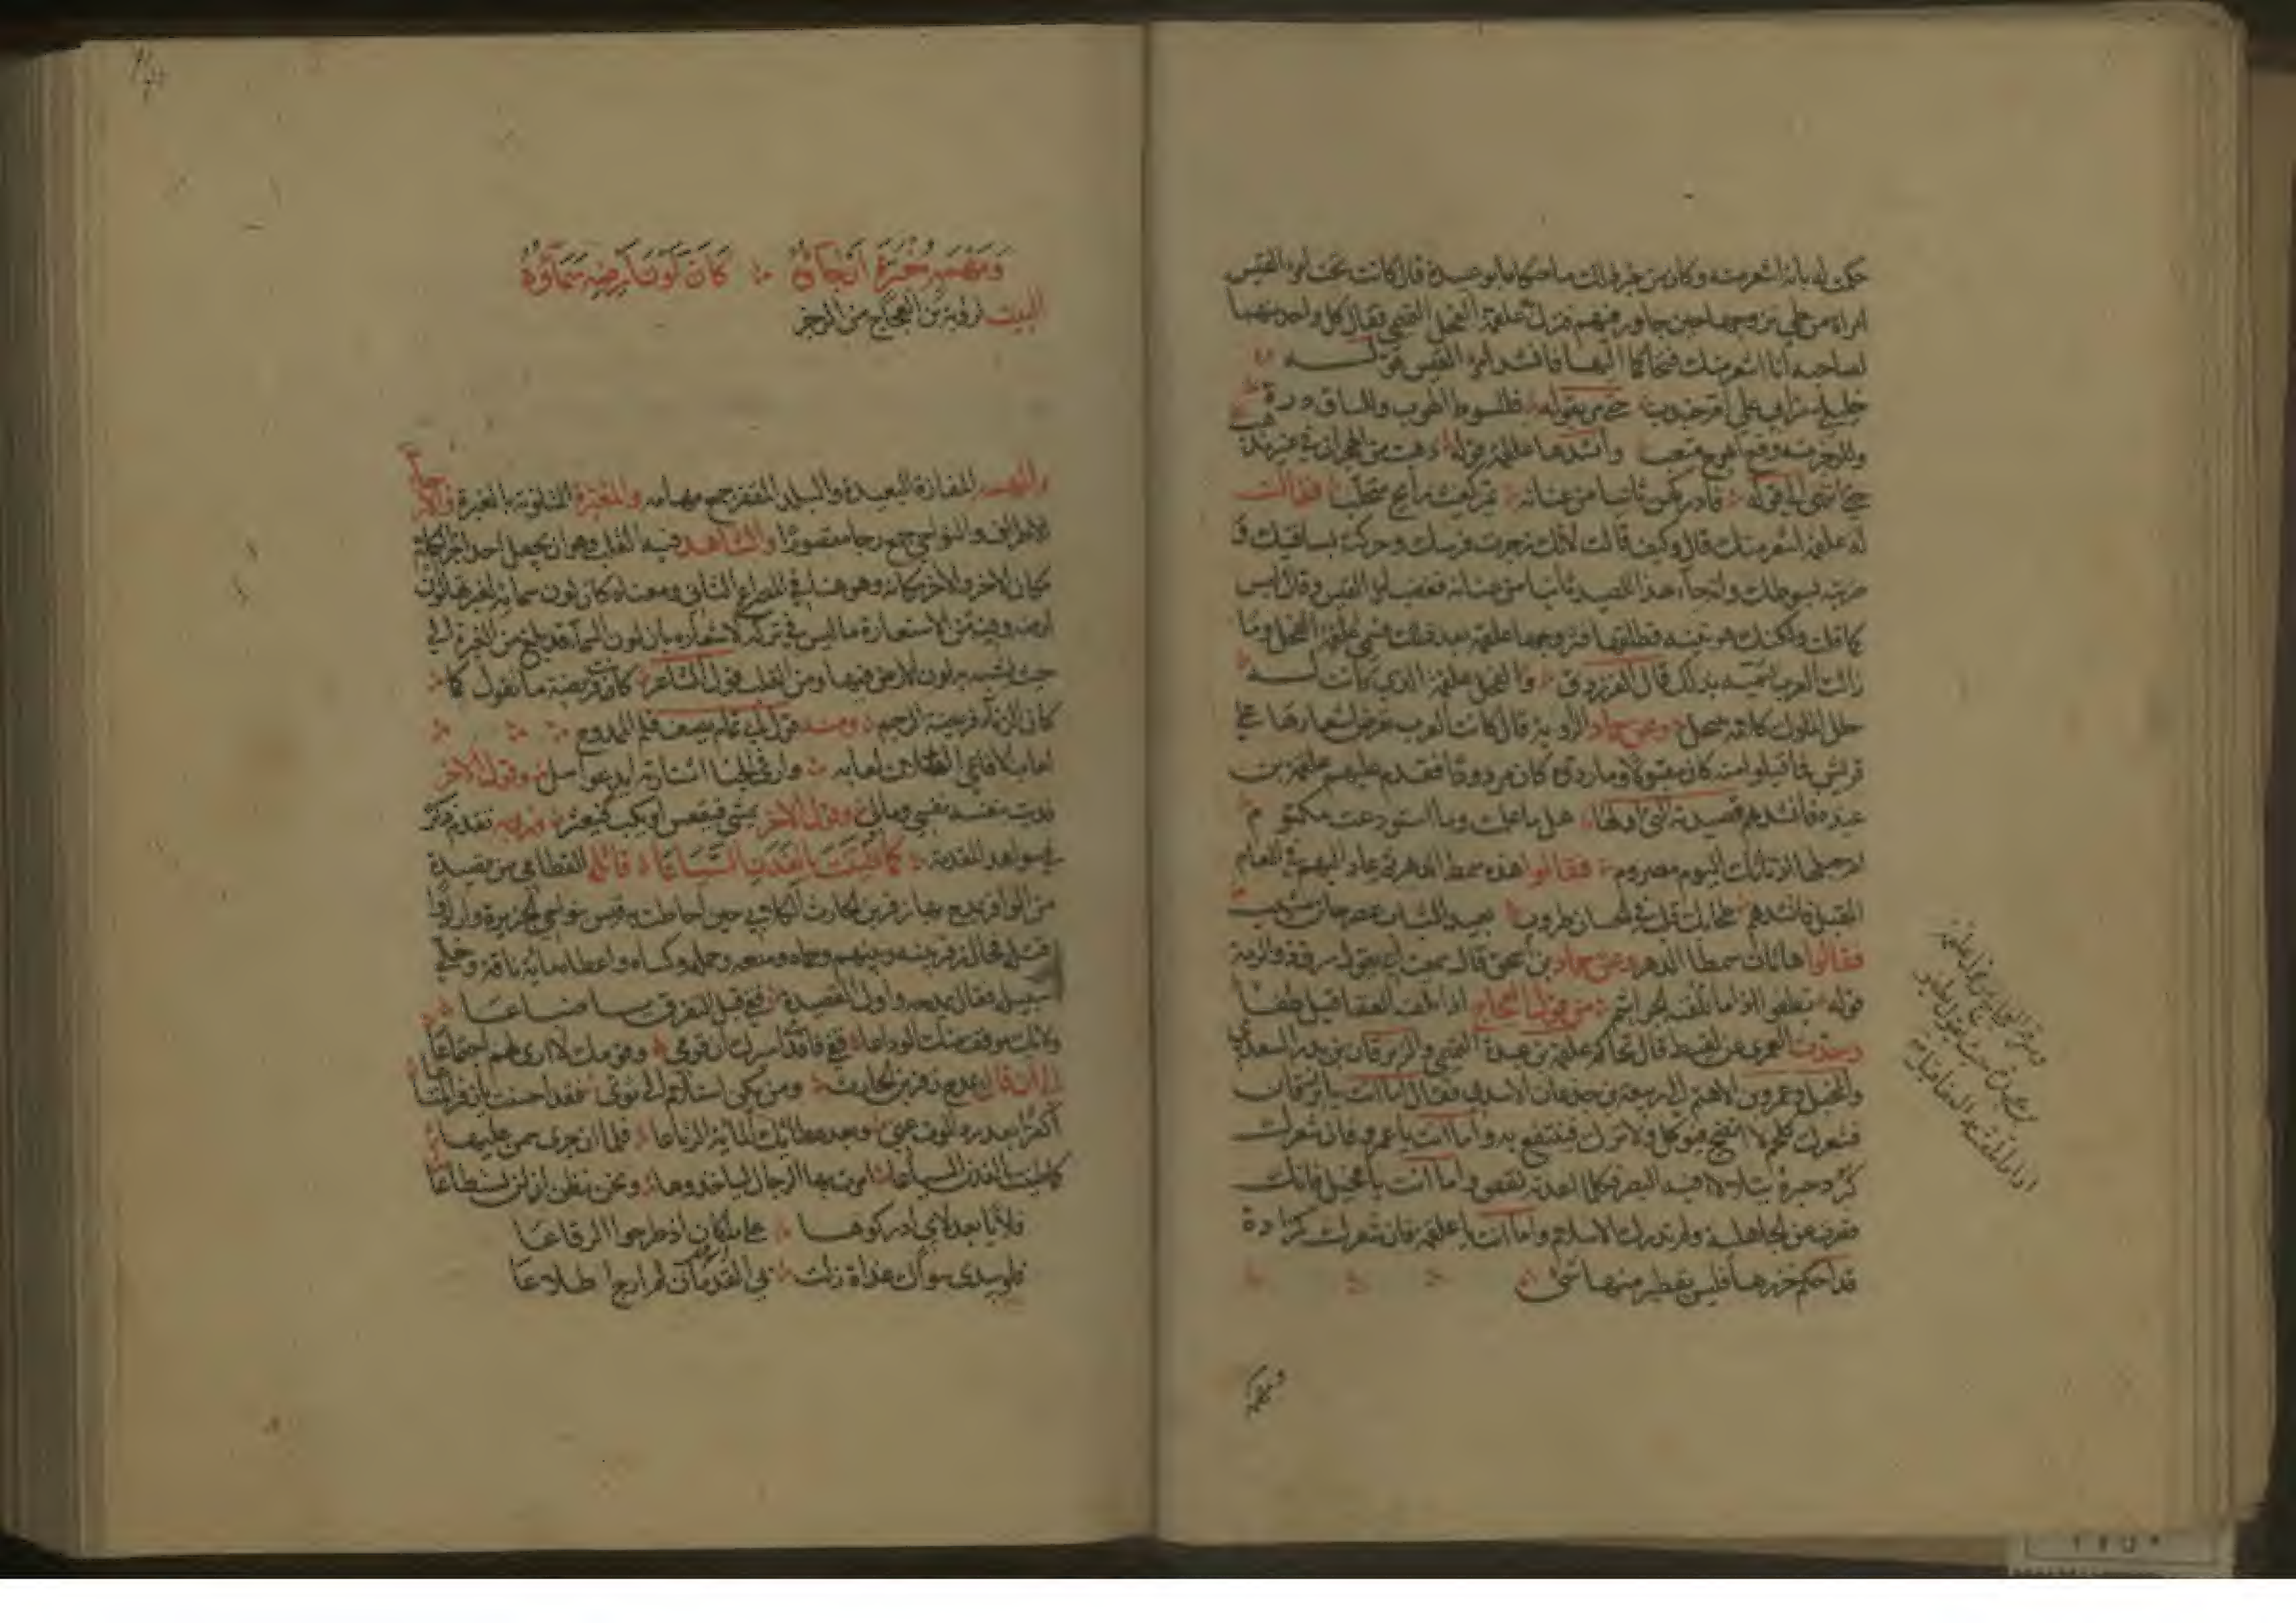 حكم له بانه اشعر منه وكان من خبر ذلك ما حكاه ابو عبيدة قال كانت تحت امرء القيس
امراة من طي تزوجها حين جاور فيهم فنزل علقمة الفحل التميمي فقال كل واحد منهما
لصاحبه انا اشعر منك فتحاكما اليها فانشد امرء القيس قوله
خليلي مرا بي على ام جندب حتى مر بقوله فللسوط الهوب وللساق درة
وللزجر منه وقع اهوج متعب وانشدها علقمة قوله ذهبت من الهجران في غير مذهب
حتى انتهى الى قوله فادركهن ثانيا من عنانه يمر كغيث رائح متحلب فقالت
له علقمة اشعر منك قال وكيف قالت لانك زجرت فرسك وحركته بساقيك و
ضربته بسوطك وانه جاء هذا الصيد ثانيا من عنانه فغضب امرء القيس وقال ليس
كما قلت ولكنك هويتيه فطلقها فتزوجها علقمة بعد ذلك فسمي علقمة الفحل وما
زالت العرب تسميه بذلك قال الفرزدق والفحل علقمة الذي كانت له
حلل الملوك كلامه ينحل وعن حماد الراوية قال كانت العرب تعرض اشعارها على
قريش فما قبلوا منه كان مقبولا وما ردوه كان مردودا فقدم عليهم علقمة بن
عبدة فانشدهم قصيدته التي اولها هل ما علمت وما استودعت مكتوم
ام حبلها اذ ناتك اليوم مصروم فقالوا هذه سمط الدهر ثم عاد اليهم في العام
المقبل فانشدهم طحا بك قلب في الحسان طروب بعيد الشباب عصر حان مشيب
فقالوا هاتان سمطا الدهر وعن حماد بن اسحق قال سمعت ابي يقول سرق ذو الرمة
قوله يطفو اذا ما تلقته الجراثيم من قول العجاج اذا تلقته العقاقيل طفا
العمري عن لقيط قال تحاكم علقمة بن عبدة التميمي والزبرقان بن بدر السعدي
والمخبل وعمرو بن الاهتم الى ربيعة بن حذار الاسدي فقال اما انت يا زبرقان
فشعرك كلحم لا انضج فيوكل ولا ترك نيا فينتفع به واما انت يا عمرو فان شعرك
كبرد حبرة يتلالا فيه البصر فكلما اعدته نقص واما انت يا مخبل فانك
قصرت عن الجاهلية ولم تدرك الاسلام واما انت يا علقمة فان شعرك كمزادة
قد احكم خرزها فليس يقطر منها شئ
ومهمه مغبرة ارجاؤه كان لون ارضه سماؤه
البيت لرؤبة بن العجاج من الرجز
والمهمه المفازة البعيدة والبلد المقفر جمع مهامه والمغبرة المتلونة بالغبرة والارجاء
الاطراف والنواحي جمع رجا مقصورا والشاهد فيه القلب وهو ان يجعل احد اجزاء الكلام
مكان الاخر والاخر مكانه وهو هنا في المصراع الثاني ومعناه كان لون سمائه لغبرتها لون
ارضه وفيه من الاستعارة ما ليس في تركه لاشعاره بان لون السماء قد بلغ من الغبرة الى
حيث يشبه به لون الارض فيها ومن القلب قول الشاعر كانت فريضة ما تقول كما
كان الزناء فريضة الرجم ومنه قول ابي تمام يصف قلم الممدوح
لعاب الافاعي القاتلات لعابه واري الجنا اشتارته ايد عواسل وقول الاخر
فديت بنفسه نفسي ومالي وقول الاخر يمشي فيقعس او يكب فيعثر تقدم ذكره
في شواهد المقدمة كما طينت بالفدن السياعا قائله القطامي من قصيدة
من الوافر يمدح بها زفر بن الحارث الكلابي حين احاطت به قيس بنواحي الجزيرة وارادوا
قتله فحال زفر بينه وبينهم وحماه ومنعه وحمله وكساه واعطاه مائة ناقة وخلى
سبيله فقال يمدحه واول القصيدة قفي قبل التفرق يا ضباعا
ولا يك موقف منك الوداعا قفي فادي اسيرك ان قومي وقومك لا ارى لهم اجتماعا
الى ان قال يمدح زفر بن الحارث ومن يكن استلام الى ثوي فقد احسنت يا زفر المتاعا
اكفرا بعد رد الموت عني وبعد عطائك المائة الرتاعا فلما ان جرى سمن عليها
كما طينت بالفدن السياعا امرت بها الرجال لياخذوها ونحن نظن ان لن تستطاعا
فلايا بعد لاي ادركوها على ما كان اذ طرحوا الرقاعا
فلو بيدي سواك غداة زلت بي القدمان لم ارج اطلاعا